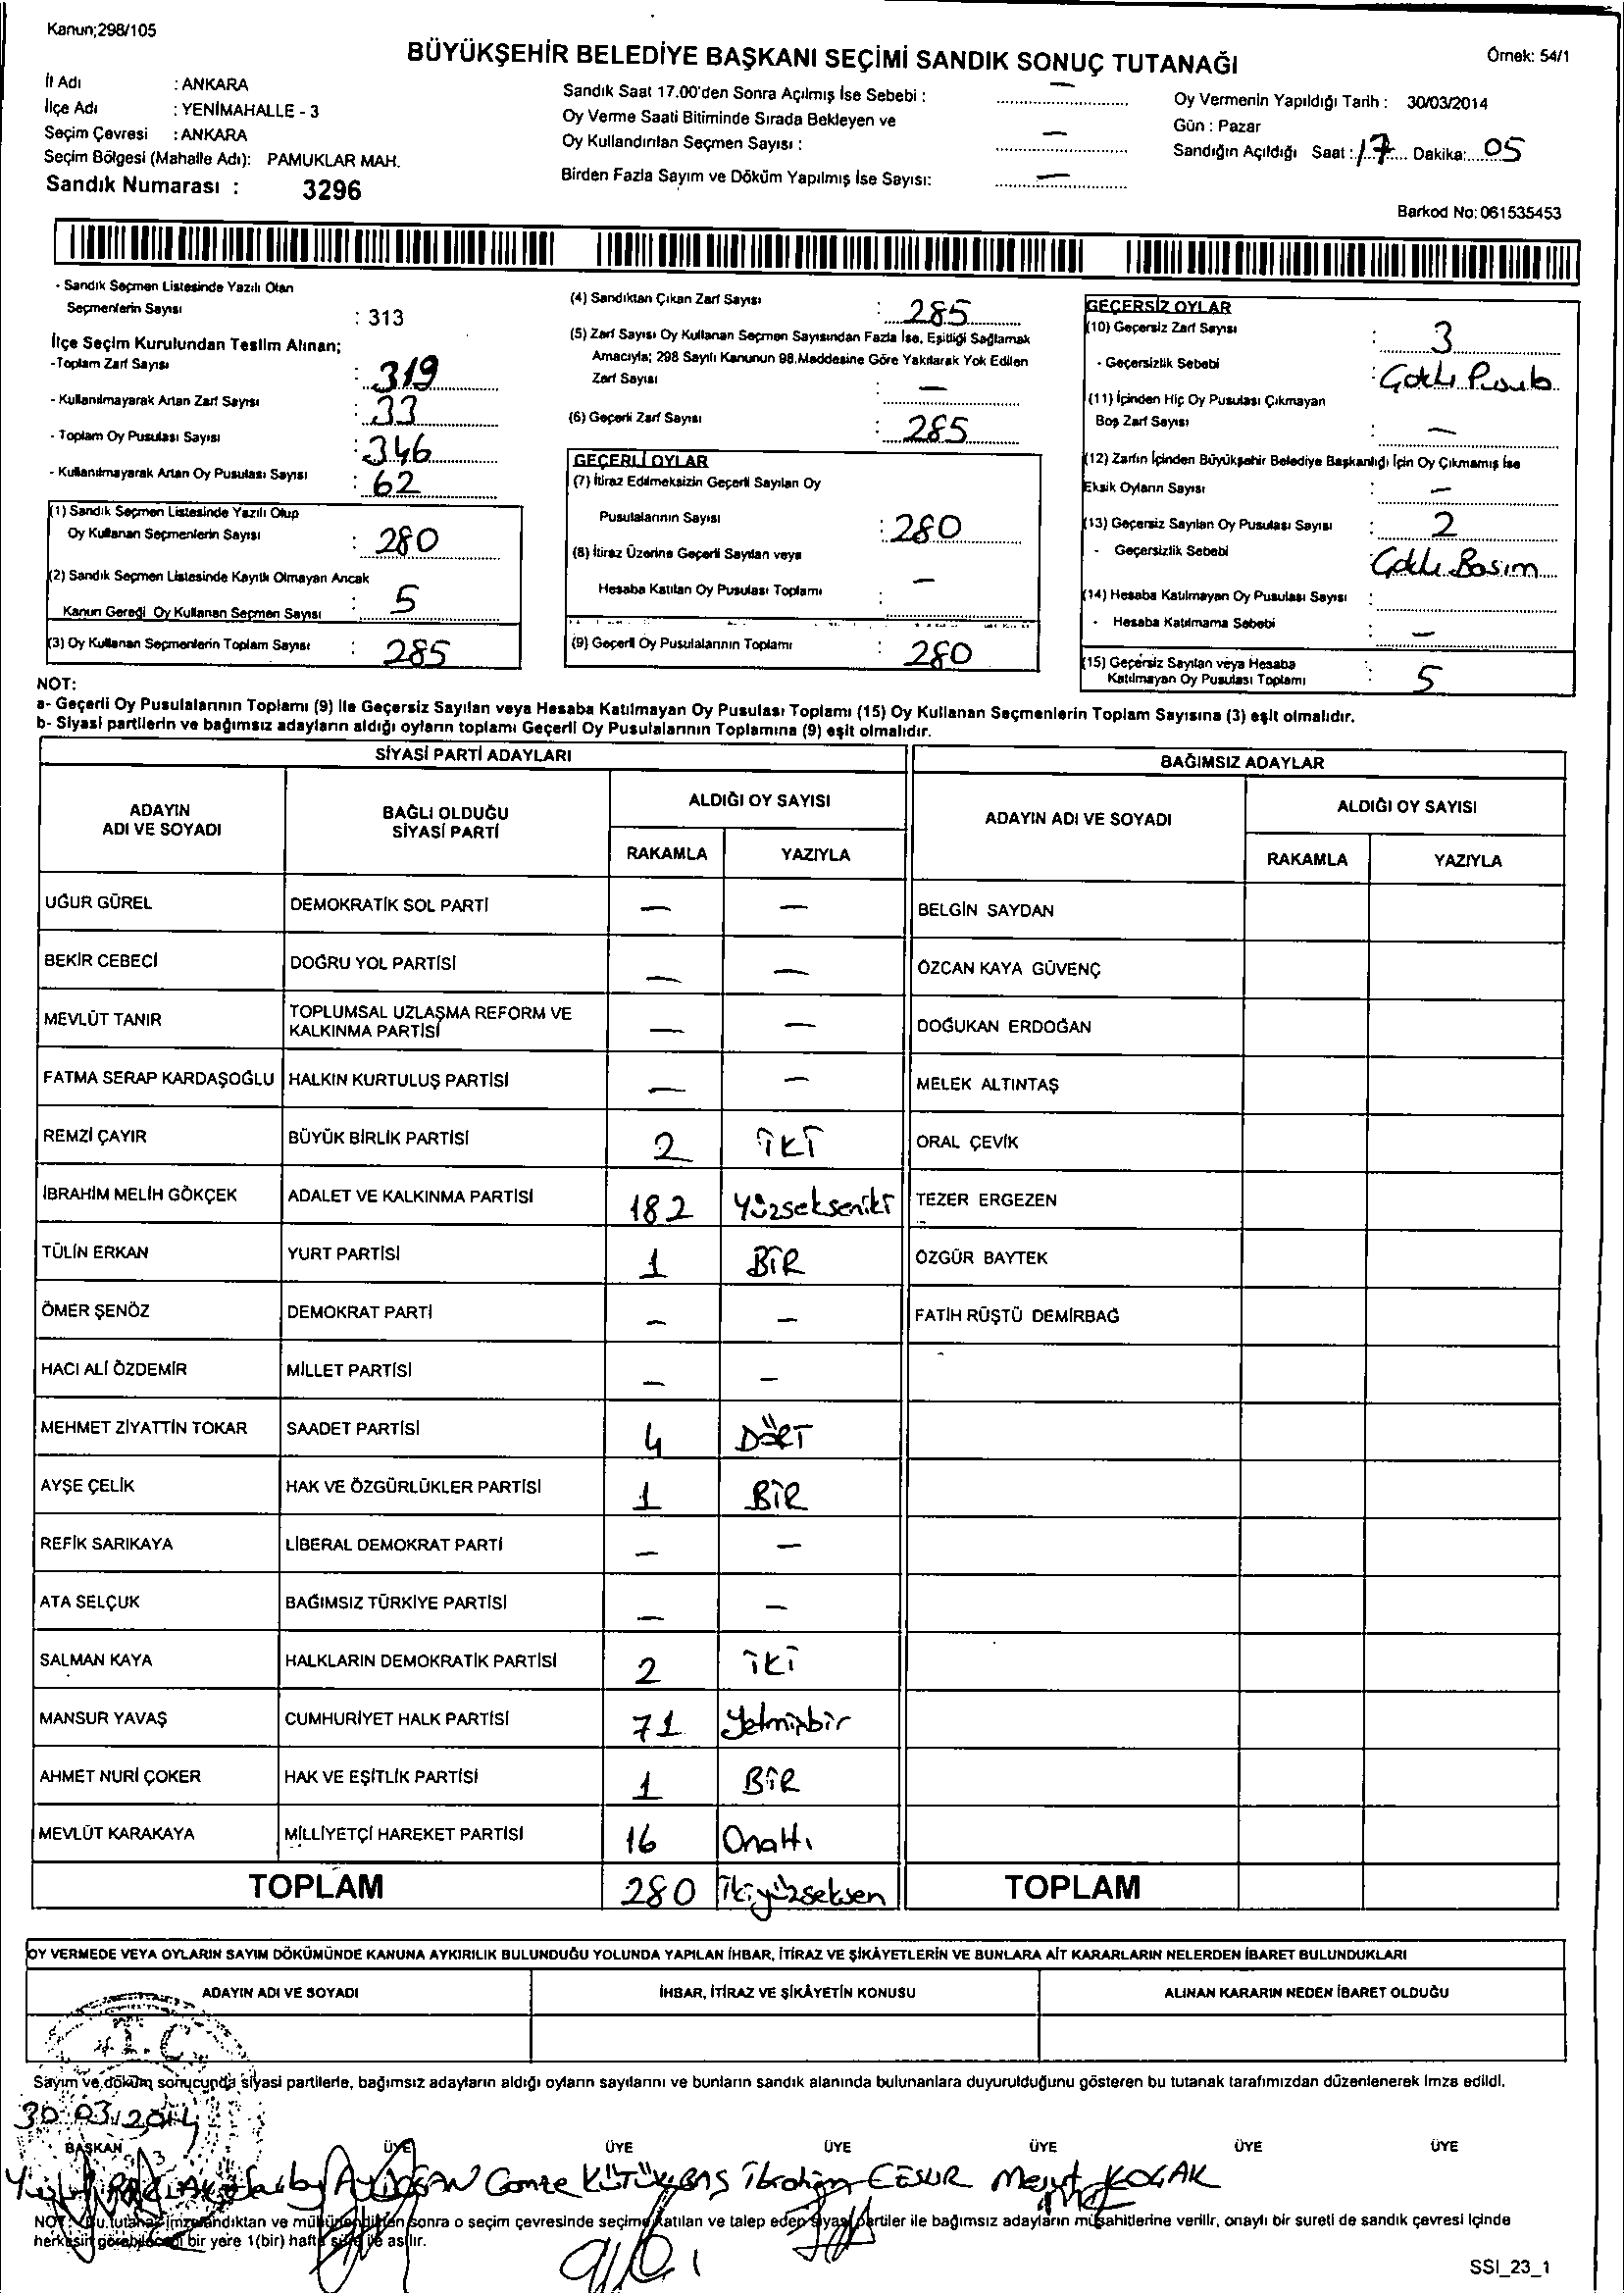 Kanun;298/105
BÜYÜKŞEHİR BELEDİYE BAŞKANI SEÇİMİ SANDIK SONUÇ TUTANAĞI
Örnek: 54/1
İl Adı : ANKARA
İlçe Adı : YENİMAHALLE - 3
Seçim Çevresi : ANKARA
Seçim Bölgesi (Mahalle Adı): PAMUKLAR MAH.
Sandık Numarası : 3296
Sandık Saat 17.00'den Sonra Açılmış İse Sebebi : —
Oy Verme Saati Bitiminde Sırada Bekleyen ve
Oy Kullandırılan Seçmen Sayısı : —
Birden Fazla Sayım ve Döküm Yapılmış İse Sayısı: —
Oy Vermenin Yapıldığı Tarih : 30/03/2014
Gün : Pazar
Sandığın Açıldığı Saat : 17 Dakika: 05
Barkod No: 061535453
- Sandık Seçmen Listesinde Yazılı Olan
Seçmenlerin Sayısı : 313
İlçe Seçim Kurulundan Teslim Alınan;
-Toplam Zarf Sayısı : 319
- Kullanılmayarak Artan Zarf Sayısı : 33
- Toplam Oy Pusulası Sayısı : 346
- Kullanılmayarak Artan Oy Pusulası Sayısı : 62
(1) Sandık Seçmen Listesinde Yazılı Olup
Oy Kullanan Seçmenlerin Sayısı : 280
(2) Sandık Seçmen Listesinde Kayıtlı Olmayan Ancak
Kanun Gereği Oy Kullanan Seçmen Sayısı : 5
(3) Oy Kullanan Seçmenlerin Toplam Sayısı : 285
(4) Sandıktan Çıkan Zarf Sayısı : 285
(5) Zarf Sayısı Oy Kullanan Seçmen Sayısından Fazla İse, Eşitliği Sağlamak
Amacıyla; 298 Sayılı Kanunun 98.Maddesine Göre Yakılarak Yok Edilen
Zarf Sayısı : —
(6) Geçerli Zarf Sayısı : 285
GEÇERLİ OYLAR
(7) İtiraz Edilmeksizin Geçerli Sayılan Oy
Pusulalarının Sayısı : 280
(8) İtiraz Üzerine Geçerli Sayılan veya
Hesaba Katılan Oy Pusulası Toplamı : —
(9) Geçerli Oy Pusulalarının Toplamı : 280
GEÇERSİZ OYLAR
(10) Geçersiz Zarf Sayısı : 3
- Geçersizlik Sebebi : Çoklu
(11) İçinden Hiç Oy Pusulası Çıkmayan
Boş Zarf Sayısı : —
(12) Zarfın İçinden Büyükşehir Belediye Başkanlığı İçin Oy Çıkmamış İse
Eksik Oyların Sayısı : —
(13) Geçersiz Sayılan Oy Pusulası Sayısı : 2
- Geçersizlik Sebebi : Çoklu Basım
(14) Hesaba Katılmayan Oy Pusulası Sayısı :
- Hesaba Katılmama Sebebi : —
(15) Geçersiz Sayılan veya Hesaba
Katılmayan Oy Pusulası Toplamı : 5
NOT:
a- Geçerli Oy Pusulalarının Toplamı (9) ile Geçersiz Sayılan veya Hesaba Katılmayan Oy Pusulası Toplamı (15) Oy Kullanan Seçmenlerin Toplam Sayısına (3) eşit olmalıdır.
b- Siyasi partilerin ve bağımsız adayların aldığı oyların toplamı Geçerli Oy Pusulalarının Toplamına (9) eşit olmalıdır.
SİYASİ PARTİ ADAYLARI
BAĞIMSIZ ADAYLAR
ADAYIN ADI VE SOYADI
BAĞLI OLDUĞU SİYASİ PARTİ
ALDIĞI OY SAYISI
RAKAMLA YAZIYLA
ADAYIN ADI VE SOYADI
ALDIĞI OY SAYISI
RAKAMLA YAZIYLA
UĞUR GÜREL DEMOKRATİK SOL PARTİ — — BELGİN SAYDAN
BEKİR CEBECİ DOĞRU YOL PARTİSİ — — ÖZCAN KAYA GÜVENÇ
MEVLÜT TANIR TOPLUMSAL UZLAŞMA REFORM VE KALKINMA PARTİSİ — — DOĞUKAN ERDOĞAN
FATMA SERAP KARDAŞOĞLU HALKIN KURTULUŞ PARTİSİ — — MELEK ALTINTAŞ
REMZİ ÇAYIR BÜYÜK BİRLİK PARTİSİ 2 İKİ ORAL ÇEVİK
İBRAHİM MELİH GÖKÇEK ADALET VE KALKINMA PARTİSİ 182 Yüzseksenikİ TEZER ERGEZEN
TÜLİN ERKAN YURT PARTİSİ 1 BİR ÖZGÜR BAYTEK
ÖMER ŞENÖZ DEMOKRAT PARTİ — — FATİH RÜŞTÜ DEMİRBAĞ
HACI ALİ ÖZDEMİR MİLLET PARTİSİ — —
MEHMET ZİYATTİN TOKAR SAADET PARTİSİ 4 DÖRT
AYŞE ÇELİK HAK VE ÖZGÜRLÜKLER PARTİSİ 1 BİR
REFİK SARIKAYA LİBERAL DEMOKRAT PARTİ — —
ATA SELÇUK BAĞIMSIZ TÜRKİYE PARTİSİ — —
SALMAN KAYA HALKLARIN DEMOKRATİK PARTİSİ 2 İKİ
MANSUR YAVAŞ CUMHURİYET HALK PARTİSİ 71 Yetmişbir
AHMET NURİ ÇOKER HAK VE EŞİTLİK PARTİSİ 1 BİR
MEVLÜT KARAKAYA MİLLİYETÇİ HAREKET PARTİSİ 16 Onaltı
TOPLAM 280 İkiyüzseksen TOPLAM
OY VERMEDE VEYA OYLARIN SAYIM DÖKÜMÜNDE KANUNA AYKIRILIK BULUNDUĞU YOLUNDA YAPILAN İHBAR, İTİRAZ VE ŞİKÂYETLERİN VE BUNLARA AİT KARARLARIN NELERDEN İBARET BULUNDUKLARI
ADAYIN ADI VE SOYADI İHBAR, İTİRAZ VE ŞİKÂYETİN KONUSU ALINAN KARARIN NEDEN İBARET OLDUĞU
T.C.
Sayım ve döküm sonucunda siyasi partilerle, bağımsız adayların aldığı oyların sayılarını ve bunların sandık alanında bulunanlara duyurulduğunu gösteren bu tutanak tarafımızdan düzenlenerek imza edildi.
30.03.2014
BAŞKAN ÜYE ÜYE ÜYE ÜYE ÜYE ÜYE
AYDOĞAN Gamze KÜTÜKBAŞ İbrahim CESUR Mesut KOÇAK
NOT: Bu tutanak imzalandıktan ve mühürlendikten sonra o seçim çevresinde seçime katılan ve talep eden siyasi partiler ile bağımsız adayların müşahitlerine verilir, onaylı bir sureti de sandık çevresi içinde
herkesin görebileceği bir yere 1(bir) hafta süre ile asılır.
SSI_23_1